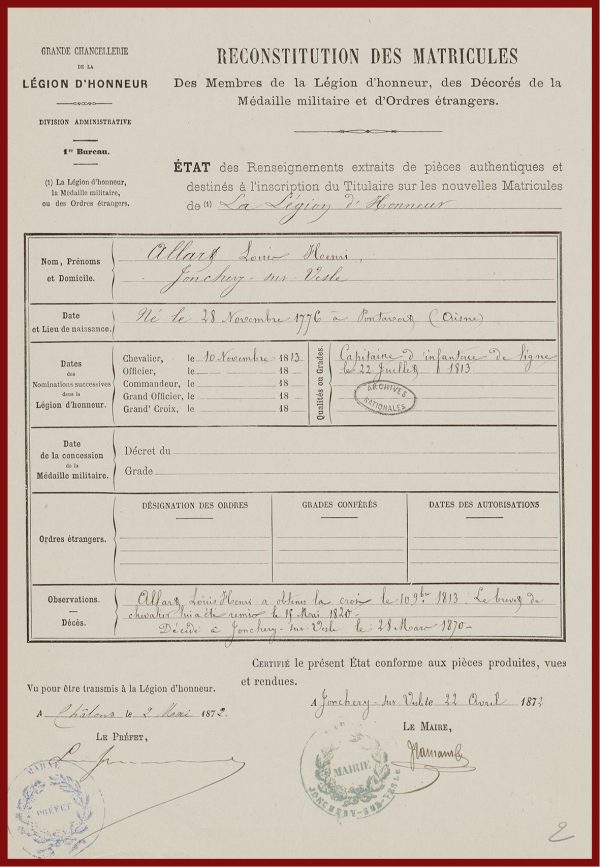 GRANDE CHANCELLERIE
DE LA
LÉGION D'HONNEUR
DIVISION ADMINISTRATIVE
1er Bureau.
(1) La Légion d'honneur,
la Médaille militaire,
ou des Ordres étrangers.
RECONSTITUTION DES MATRICULES
Des Membres de la Légion d'honneur, des Décorés de la
Médaille militaire et d'Ordres étrangers.
ÉTAT des Renseignements extraits de pièces authentiques et
destinés à l'inscription du Titulaire sur les nouvelles Matricules
de (1) La Légion d'Honneur
Nom, Prénoms
et Domicile.
Allart Louis Henri,
Jonchery-sur-Vesle
Date
et Lieu de naissance.
Né le 28 Novembre 1776 à Pontavert (Aisne)
Dates
des
Nominations successives
dans la
Légion d'honneur.
Chevalier, le 10 Novembre 1813
Officier, le 18
Commandeur, le 18
Grand Officier, le 18
Grand' Croix, le 18
Qualités ou Grades.
Capitaine d'infanterie de ligne
le 22 Juillet 1813
ARCHIVES
NATIONALES
Date
de la concession
de la
Médaille militaire.
Décret du
Grade
Ordres étrangers.
DÉSIGNATION DES ORDRES
GRADES CONFÉRÉS
DATES DES AUTORISATIONS
Observations.
—
Décès.
Allart Louis Henri a obtenu la croix le 10 9bre 1813. Le brevet de
chevalier lui a été remis le 15 Mai 1820-
Décédé à Jonchery-sur-Vesle le 28 Mars 1870-
CERTIFIÉ le présent État conforme aux pièces produites, vues
et rendues.
A Jonchery-sur-Vesle 22 Avril 1872
LE MAIRE,
MAIRIE
JONCHERY-SUR-VESLE
Vu pour être transmis à la Légion d'honneur.
A Châlons le 2 Mai 1872.
LE PRÉFET,
MARNE
PRÉFET
2